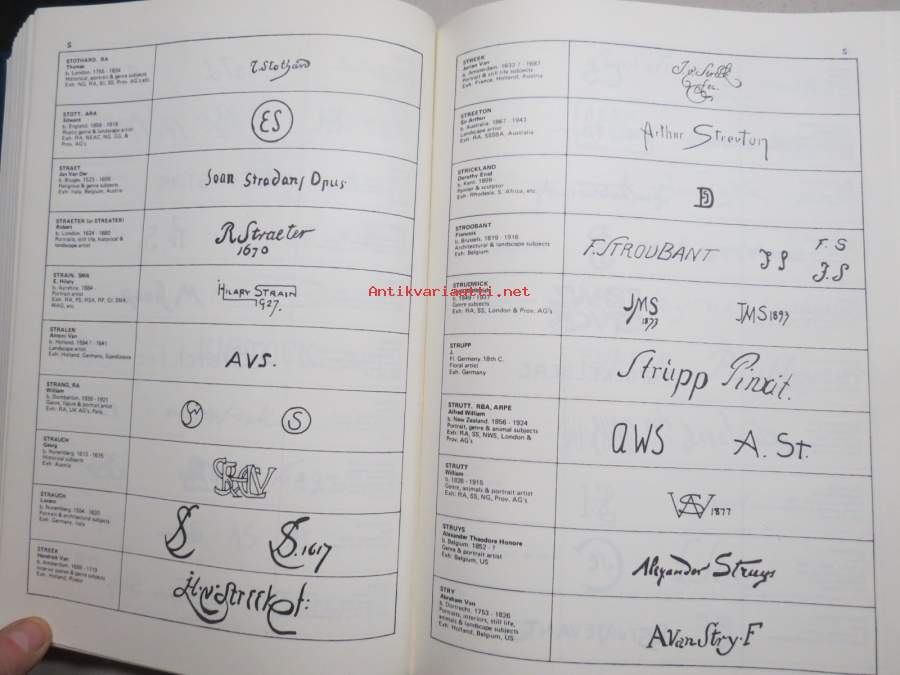 S
STOTHARD, RA
Thomas
b. London, 1755 - 1834
Historical, portrait & genre subjects
Exh: NG, RA, BI, SS, Prov. AG's
T. Stothard
STOTT, ARA
Edward
b. England, 1859 - 1918
Rustic genre & landscape artist
Exh: RA, NEAC, NG, GG, &
Prov. AG's
ES
STRAET
Jan Van Der
b. Bruges, 1523 - 1605
Religious & genre subjects
Exh: Italy, Belgium, Austria
Joan Stradanj Opus
STRAETER (or STREATER)
Robert
b. London, 1624 - 1680
Portraits, still life, historical &
landscape artist
R Straeter
1670
STRAIN, SWA
E. Hilary
b. Ayrshire, 1884 -
Portrait artist
Exh: RA, PS, RSA, RP, GI, SWA,
WAG, etc.
HILARY STRAIN
1927.
STRALEN
Antoni Van
b. Holland, 1594? - 1641
Landscape artist
Exh: Holland, Germany, Scandinavia
AVS.
STRANG, RA
William
b. Dumbarton, 1859 - 1921
Genre, figure & portrait artist
Exh: RA, UK AG's, Paris
S
STRAUCH
Georg
b. Nuremberg, 1613 - 1675
Historical subjects
Exh: Austria
STRAUCH
Lorenz
b. Nuremberg, 1554 - 1630
Portrait & architectural subjects
Exh: Germany, Italy
LS
LS. 1617
STREEK
Hendrick Van
b. Amsterdam, 1659 - 1719
Interior scenes & genre subjects
Exh: Holland, Russia
H.v. Streek f:
S
STREEK
Jurian Van
b. Amsterdam, 1632? - 1687
Portrait & still life subjects
Exh: France, Holland, Austria
STREETON
Sir Arthur
b. Australia, 1867 - 1943
Landscape artist
Exh: RA, SSBA, Australia
Arthur Streeton
STRICKLAND
Dorothy Enid
b. Kent, 1899 -
Painter & sculptor
Exh: Rhodesia, S. Africa, etc.
STROOBANT
Francois
b. Brussels, 1819 - 1916
Architectural & landscape subjects
Exh: Belgium
F. STROUBANT
F S
F. S
F.S
STRUDWICK
b. 1849 - 1937
Genre subjects
Exh: RA, SS, London & Prov. AG's
JMS
1877
JMS 1897
STRUPP
J.
Fl. Germany, 18th C.
Floral artist
Exh: Germany
Strüpp Pinxit.
STRUTT, RBA, ARPE
Alfred William
b. New Zealand, 1856 - 1924
Portrait, genre & animal subjects
Exh: RA, SS, NWS, London &
Prov. AG's
AWS
A. St.
STRUTT
William
b. 1826 - 1915
Genre, animals & portrait artist
Exh: RA, SS, NG, Prov. AG's
1877
STRUYS
Alexander Theodore Honore
b. Belgium, 1852 - ?
Genre & portrait artist
Exh: Belgium, US
Alexander Struys
STRY
Abraham Van
b. Dortrecht, 1753 - 1826
Portraits, interiors, still life,
animals & landscape subjects
Exh: Holland, Belgium, US
A van Stry. F
Antikvariaatti.net